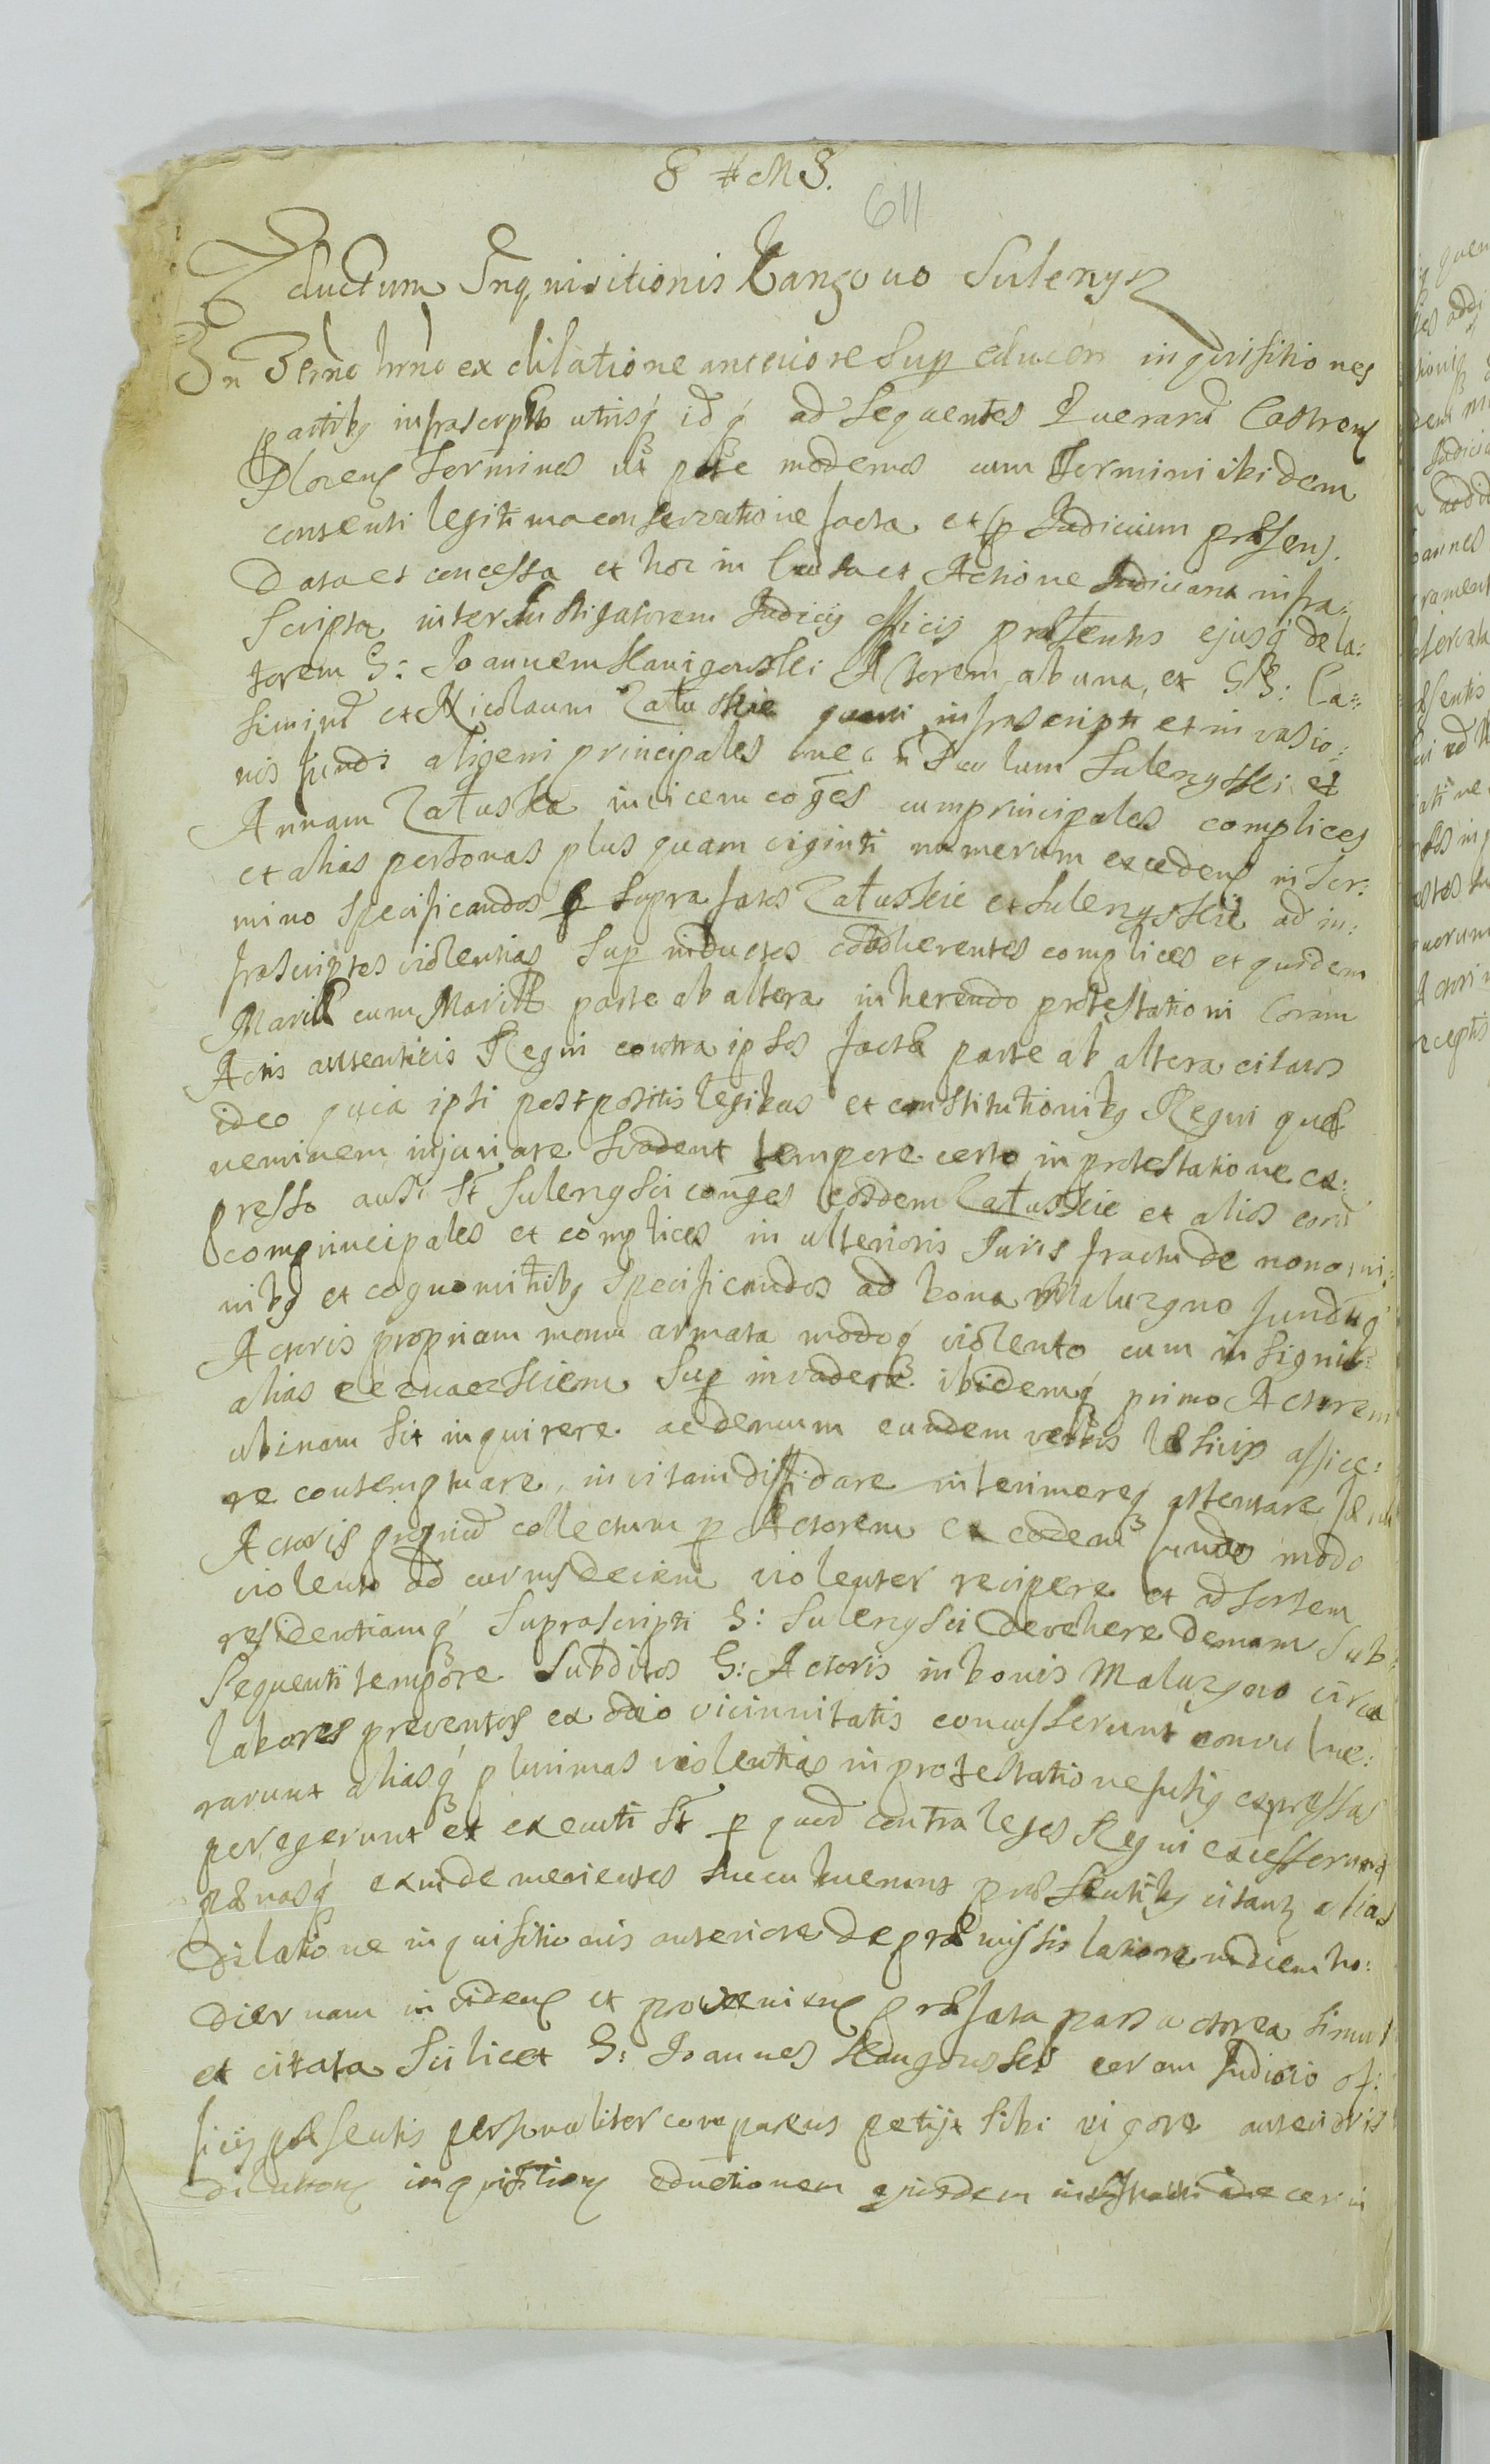 8 # M S.
611
Eductum Inquisitionis Kangowo Sulenysz
In Termo hrno ex dilatione anteriore sup educen inquisitiones
partibg infrascriptis utrisq idq ad sequentes Querarū Castrens
Plocens Terminos ut parte modernos cum Termini ibidem
contenti legitima conservatione facta et p Judicium præsens.
Data et concessa et hoc in Causa et Actione Judiciaria infra:
scripta inter Instigatorem Judicij officij præsentis ejusq dela:
torem G: Joannem Kanigowski Actorem ab una, et GG: Ca=
simirū et Nicolaum Załuskie infrascripti et invasio:
nis fundi principales nec n Sulengski et
Annam Załuska invicem coges comprincipales complices
et alias personas plus quam viginti numerum excedens in Ter:
mino specificandos p suprafatos Załuskie et Sulengskie ad in:
frascriptas violentias sup inductos coadherentes complices et quidem
Maritā cum Marito parte ab altera inherendo protestationi Coram
Actis autenticis Regni contra ipsos factæ parte ab altera citatos
ideo quia ipsi postpositis legibus et constitutionibg Regni quæ
neminem injuriare suadent tempore certo in protestatione ex:
presso ausi st Sulengsci conges eosdem Załuskie et alios eorū
comprincipales et complices in ulterioris Juris tractu de nomini:
nibg et cognominibg specificandos ad bona Maluzyno fundūq
Actoris propriam manu armata modoq violento cum insignib
alias sup invadere ibidemq primo Actorem
ubinam sit inquirere ac demum eundem verbis læsivis affice:
re contemptuare, in vitam diffidare interimereq attentare fœnū
Actoris propriū collectum p Actorem ex eodem fundo modo
violento ad currus deciem violenter recipere et ad sortem
residentiamq suprascripti G: Sulengsci devehere demam sub:
sequenti tempore subditos G: Actoris in bonis Maluzyno circa
labores preventos ex odio vicinitatis concusserunt convulne:
rarunt aliasq plurimas violentias in protestatione fusig expressas
peregerunt et executi st p quod contra leges Regni excesserunt
pœnasq exinde venientes succubuerunt præsentibg citant alias
Dilatione inquisitionis anteriore de præmissis latiore in diem ho:
diernam incidens et proveniens præfata pars actorea simul
et citata scilicet G: Joannes Kangowski coram Judicio of:
ficij præsentis personaliter comparens petijt sibi vigore anterioris
dilations inquisitions eductionem ejusdem decerni